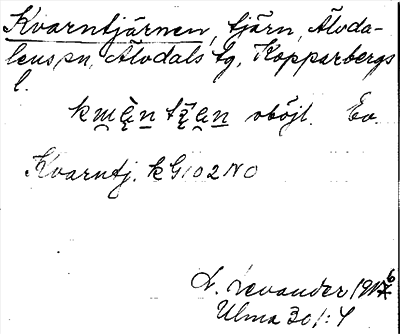 Kvarntjärnen, tjärn, Älvda-
lens sn, Älvdals tg, Kopparbergs
l.
oböjl. Ev.
Kvarntj. k G102 NO
L. Levander 1916
Ulma 301:4